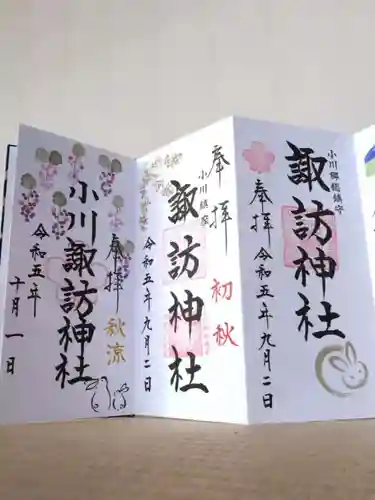 奉拝
小川郷総鎮守
諏訪神社
令和五年九月二日
奉拝
初秋
小川鎮守
諏訪神社
令和五年九月二日
奉拝
秋涼
小川諏訪神社
令和五年
十月一日